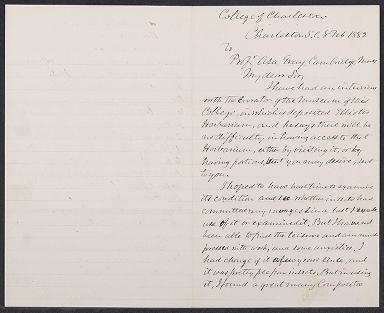 College of Charleston
Charleston S.C. 8 Feb 1882
To
Prof. Asa Gray Cambridge Mass
My dear Sir,
I have had an interview
with the Curator of the Museum of this
College, in which is deposited Elliotts
Herbarium, and he says there will be
no difficulty in having access to that
Herbarium, either by visiting it, or by
having portions, that you may desire, sent
to you.
I hoped to have had time to examine
its condition and see whether insects had
committed any ravages since last I made
use of it or examined it. But I have not
been able to find the leisure and am much
pressed with work, and some anxieties. I
had charge of it some years since, and
it was pretty free from insects. But in using
it, I found a great many Composites